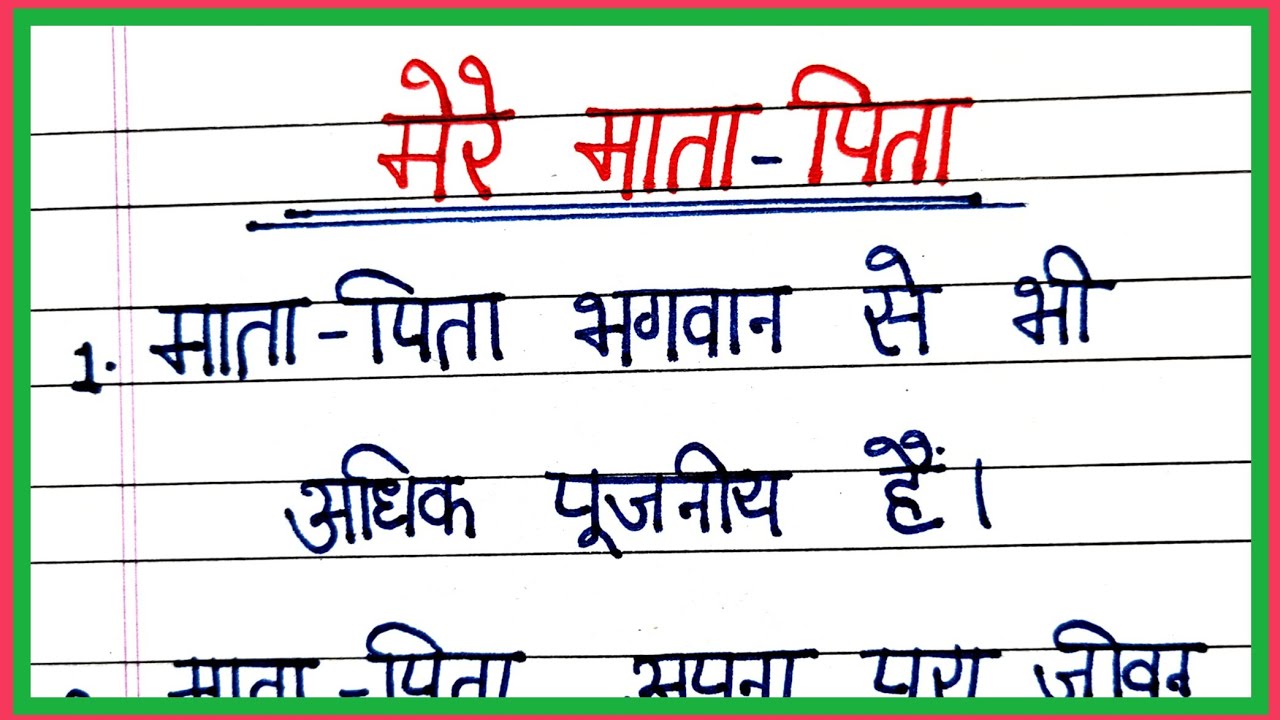 मेरे माता-पिता
1. माता-पिता भगवान से भी
अधिक पूजनीय हैं।
माता-पिता अपना पूरा जीवन